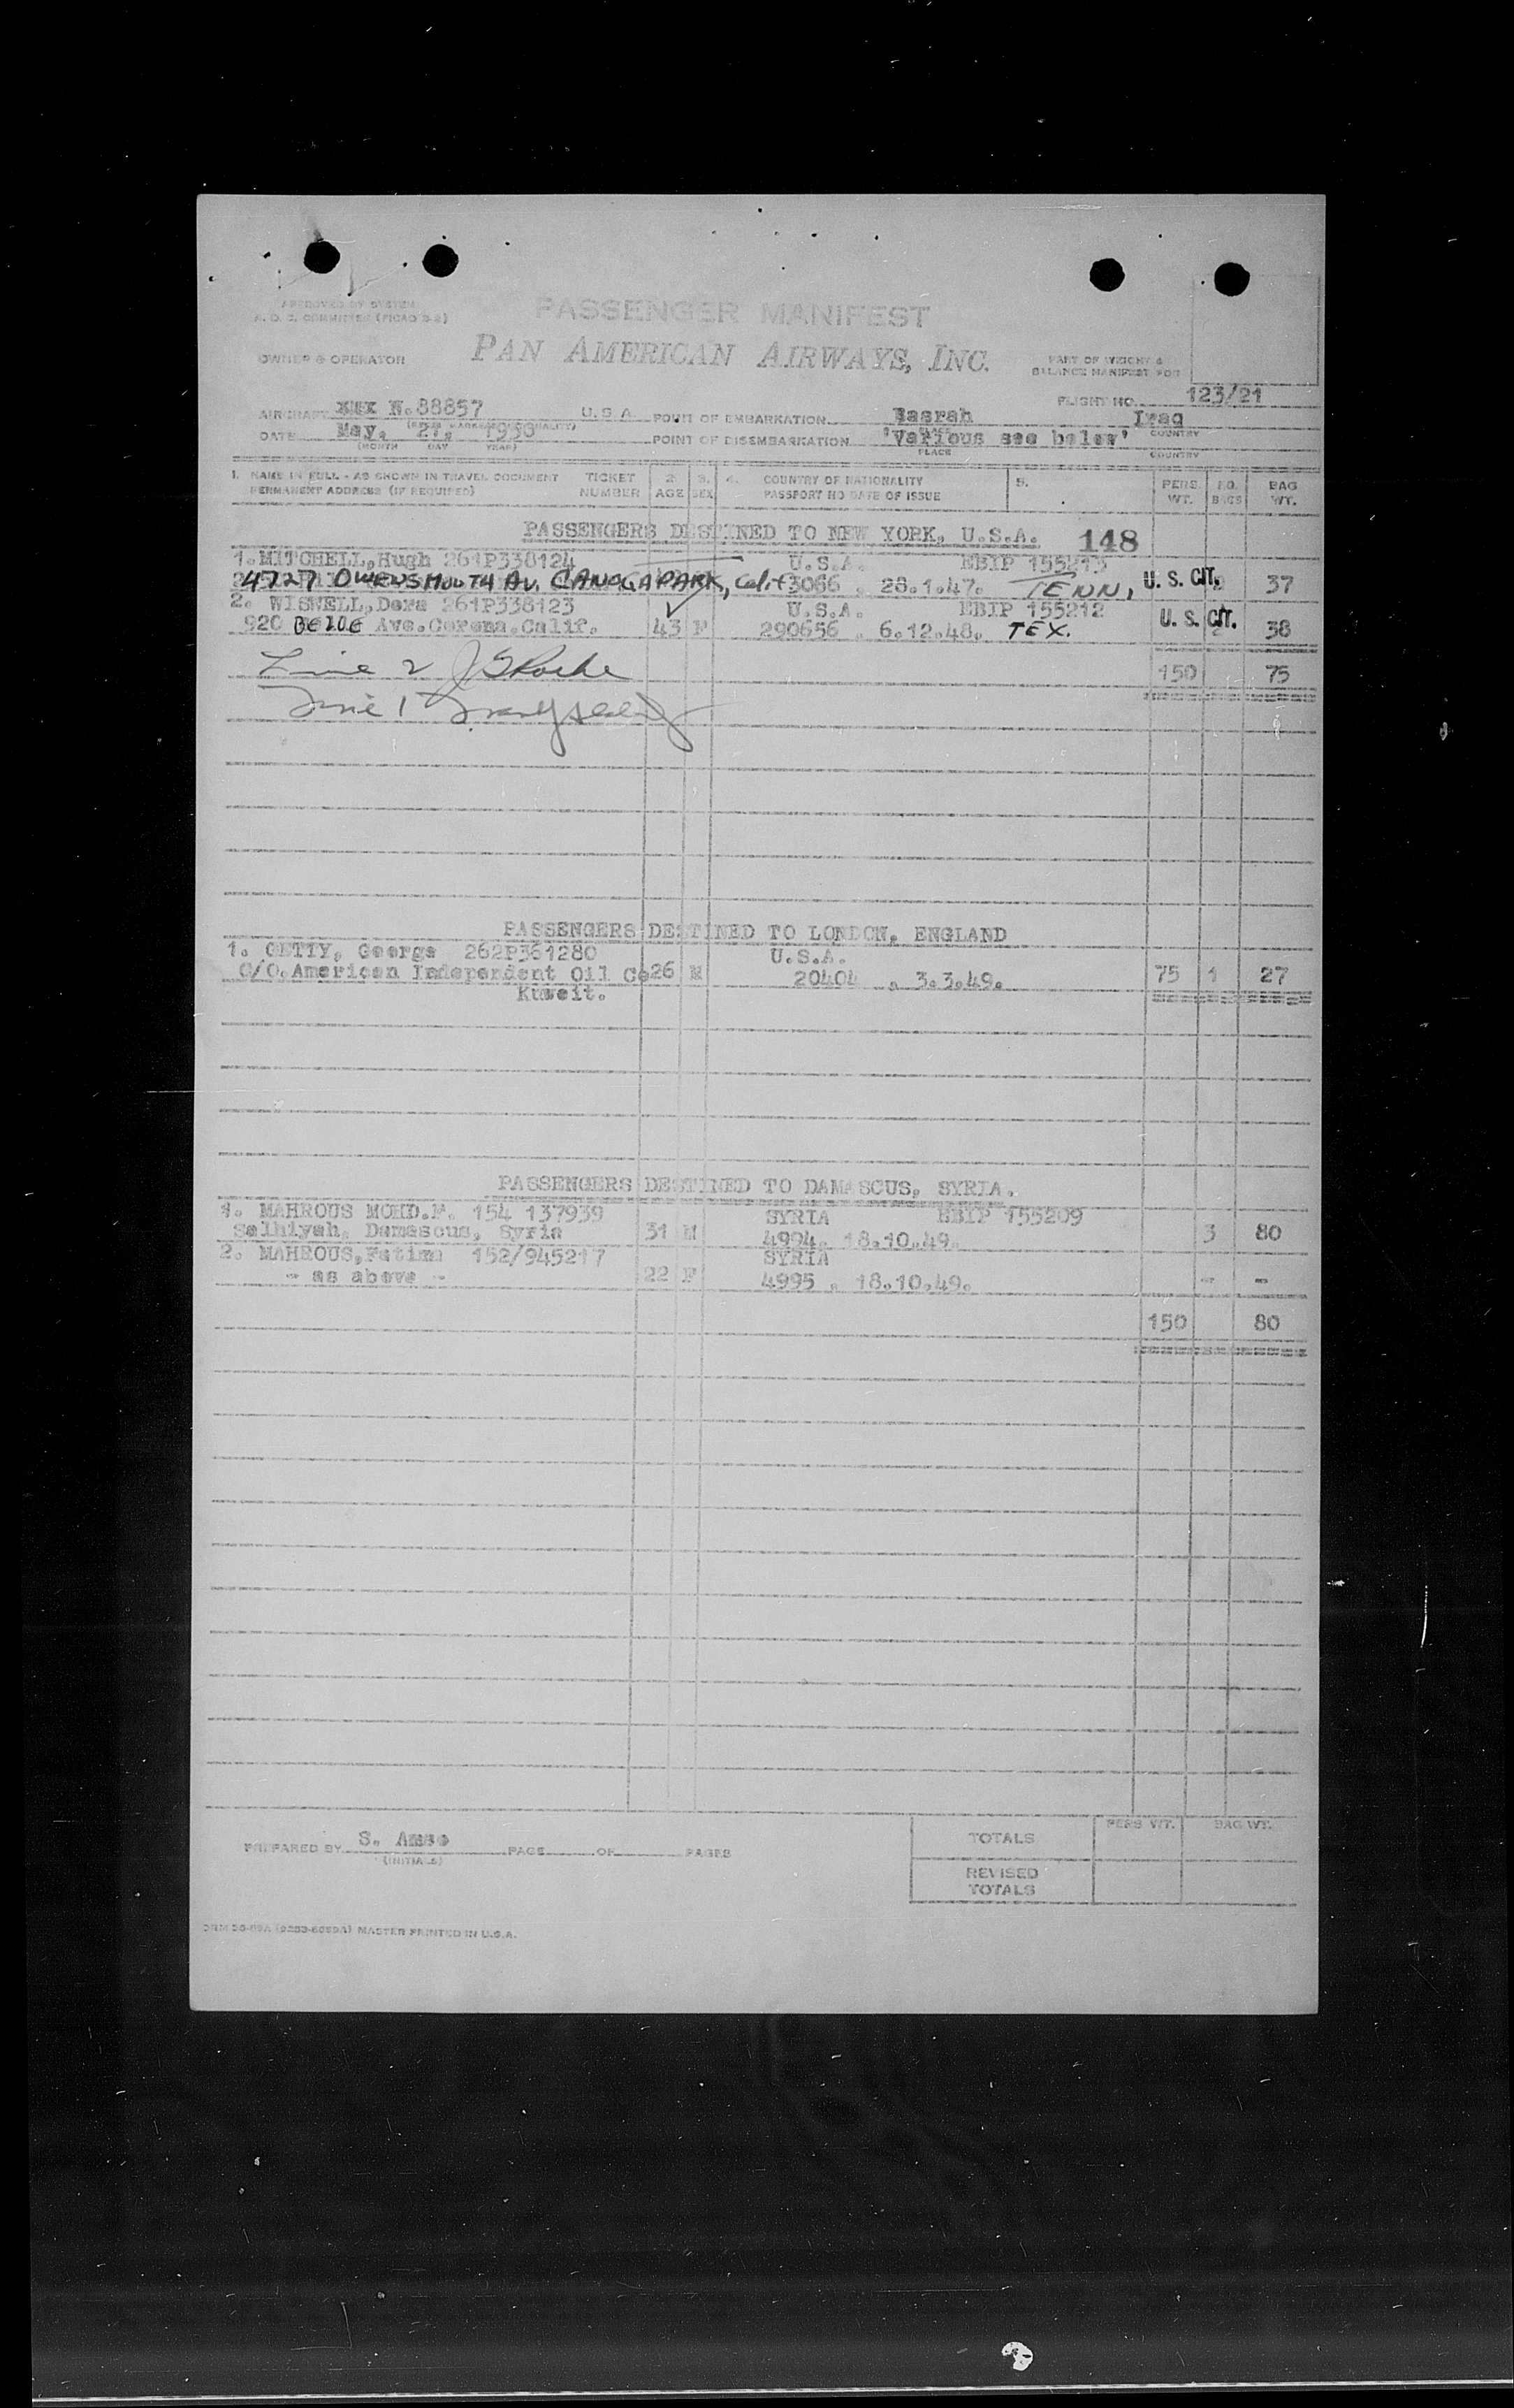 APPROVED BY SYSTEM
A. O. C. COMMITTEE (PICAO 3-2)
PASSENGER MANIFEST
OWNER & OPERATOR PAN AMERICAN AIRWAYS, INC.
PART OF WEIGHT &
BALANCE MANIFEST FOR
FLIGHT NO. 123/21
AIRCRAFT N.88857 U.S.A. POINT OF EMBARKATION Basrah Iraq
DATE May, 21, 1950 POINT OF DISEMBARKATION 'Various see below'
(MONTH DAY YEAR) PLACE COUNTRY
1. NAME IN FULL - AS SHOWN IN TRAVEL DOCUMENT TICKET 2. 3. 4. COUNTRY OF NATIONALITY 5. PERS. NO. BAG
PERMANENT ADDRESS (IF REQUIRED) NUMBER AGE SEX PASSPORT NO DATE OF ISSUE WT. BAGS WT.
PASSENGERS DESTINED TO NEW YORK, U.S.A. 148
1. MITCHELL, Hugh 261P338124 U.S.A. EBIP 155213
4727 OWENSMOUTH AV. CANOGA PARK, Calif 3066 . 28.1.47. TENN, U. S. CIT. 2 37
2. WISWELL, Dora 261P338123 U.S.A. EBIP 155212
920 Ave. Corona. Calif. 43 F 290656 . 6.12.48. TEX. U. S. CIT. 2 38
Line 2 150 75
Line 1
PASSENGERS DESTINED TO LONDON, ENGLAND
1. GETTY, George 262P361280 U.S.A.
C/O. American Independent Oil Co 26 M 20404 . 3.3.49. 75 1 27
Kuweit.
PASSENGERS DESTINED TO DAMASCUS, SYRIA.
1. MAHROUS MOHD. M. 154 137939 SYRIA EBIP 155209
Salhiyah, Damascus, Syria 31 M 4994. 18.10.49. 3 80
2. MAHROUS, Fatima 152/945217 SYRIA
- as above - 22 F 4995 . 18.10.49. - -
150 80
PREPARED BY S. Amso PAGE OF PAGES
(INITIALS)
TOTALS PERS WT. BAG WT.
REVISED
TOTALS
MASTER PRINTED IN U.S.A.